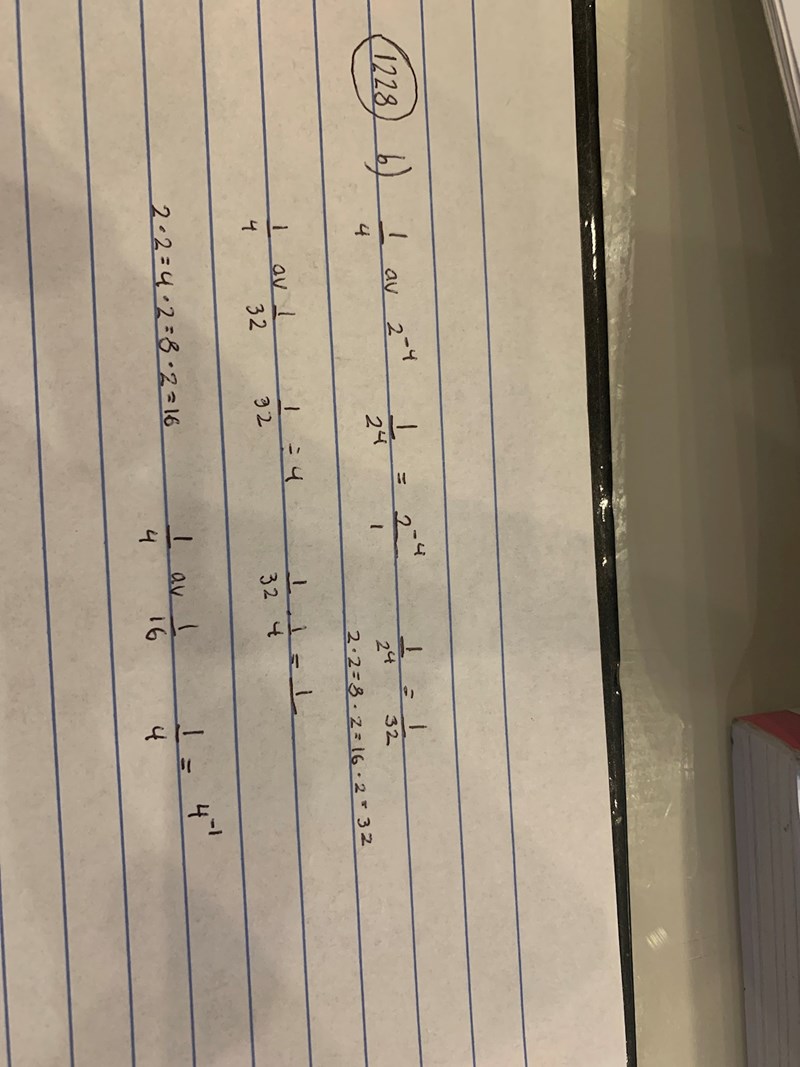 1228 b) 1/4 av 2⁻⁴ 1/2⁴ = 2⁻⁴/1 1/2⁴ = 1/32
2·2=8·2=16·2=32
1/4 av 1/32 1/32 = 4 1/32 · 1/4 = 1/
2·2=4·2=8·2=16 1/4 av 1/16 1/4 = 4⁻¹